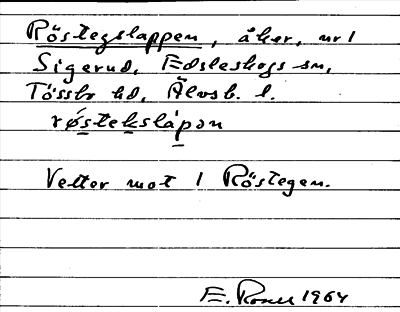 Röstegslappen, åker, nr 1
Sigerud, Edsleskogs sn,
Tössbo hd, Älvsb. l.
røstekslápən
Vetter mot 1 Röstegen.
E. 1964